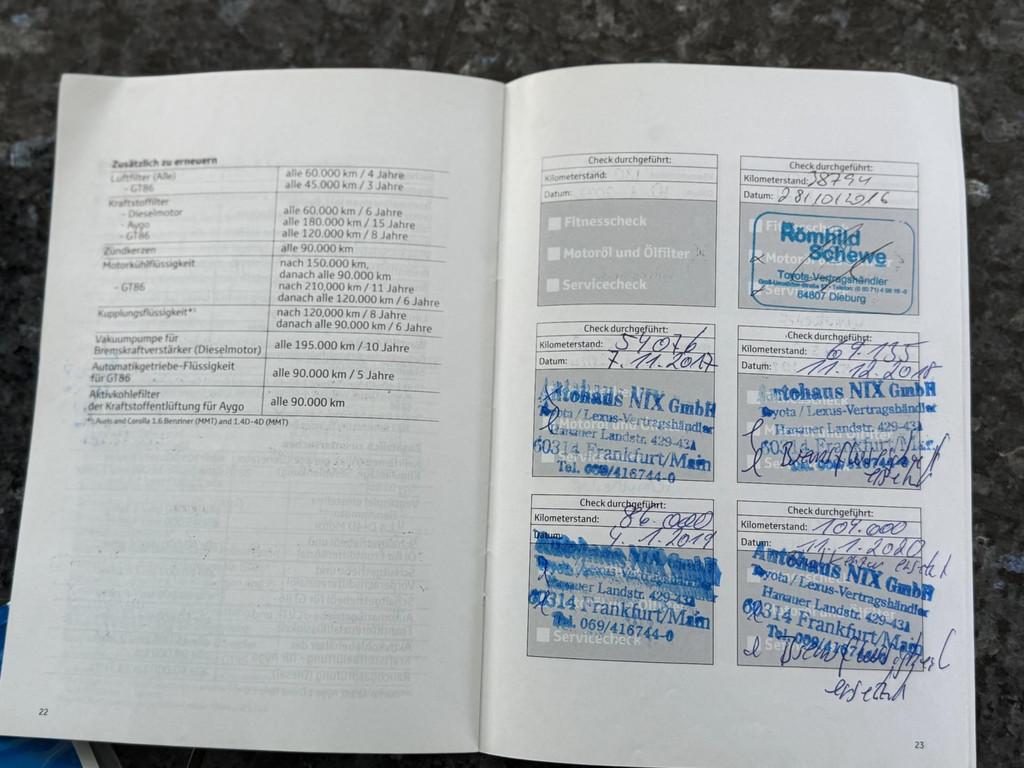 Zusätzlich zu erneuern
Luftfilter (Alle) alle 60.000 km / 4 Jahre
- GT86 alle 45.000 km / 3 Jahre
Kraftstoffilter
- Dieselmotor alle 60.000 km / 6 Jahre
- Aygo alle 180.000 km / 15 Jahre
- GT86 alle 120.000 km / 8 Jahre
Zündkerzen alle 90.000 km
Motorkühlflüssigkeit nach 150.000 km,
danach alle 90.000 km
- GT86 nach 210,000 km / 11 Jahre
danach alle 120.000 km / 6 Jahre
Kupplungsflüssigkeit*¹ nach 120,000 km / 8 Jahre
danach alle 90.000 km / 6 Jahre
Vakuumpumpe für
Bremskraftverstärker (Dieselmotor) alle 195.000 km / 10 Jahre
Automatikgetriebe-Flüssigkeit
für GT86 alle 90.000 km / 5 Jahre
Aktivkohlefilter
der Kraftstoffentlüftung für Aygo alle 90.000 km
*¹ Auris and Corolla 1.6 Benziner (MMT) and 1.4D-4D (MMT)
22
Check durchgeführt:
Kilometerstand:
Datum:
Fitnesscheck
Motoröl und Ölfilter
Servicecheck
Check durchgeführt:
Kilometerstand: 38794
Datum: 28/10/2016
Römhild
Schewe
Toyota-Vertragshändler
64807 Dieburg
Check durchgeführt:
Kilometerstand: 54076
Datum: 7.11.2017
Autohaus NIX GmbH
Toyota / Lexus-Vertragshändler
Hanauer Landstr. 429-431
60314 Frankfurt/Main
Tel. 069/416744-0
Check durchgeführt:
Kilometerstand: 69.135
Datum: 11.12.2018
Autohaus NIX GmbH
Toyota / Lexus-Vertragshändler
Hanauer Landstr. 429-431
60314 Frankfurt/Main
Tel. 069/416744-0
ersetzt
Check durchgeführt:
Kilometerstand: 86.000
Datum: 4.1.2019
Autohaus NIX GmbH
Toyota / Lexus-Vertragshändler
Hanauer Landstr. 429-431
60314 Frankfurt/Main
Tel. 069/416744-0
Servicecheck
Check durchgeführt:
Kilometerstand: 104.000
Datum: 11.1.2020
ersetzt
Autohaus NIX GmbH
Toyota / Lexus-Vertragshändler
Hanauer Landstr. 429-431
60314 Frankfurt/Main
Tel. 069/416744-0
ersetzt
23